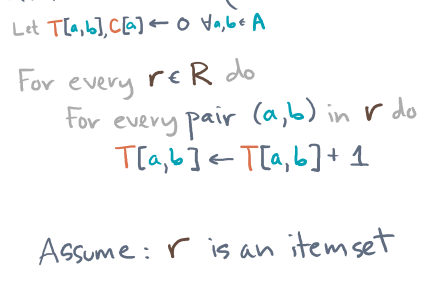 Let T[a,b], C[a] ← 0 ∀a,b ∈ A
For every r ∈ R do
For every pair (a,b) in r do
T[a,b] ← T[a,b] + 1
Assume: r is an itemset